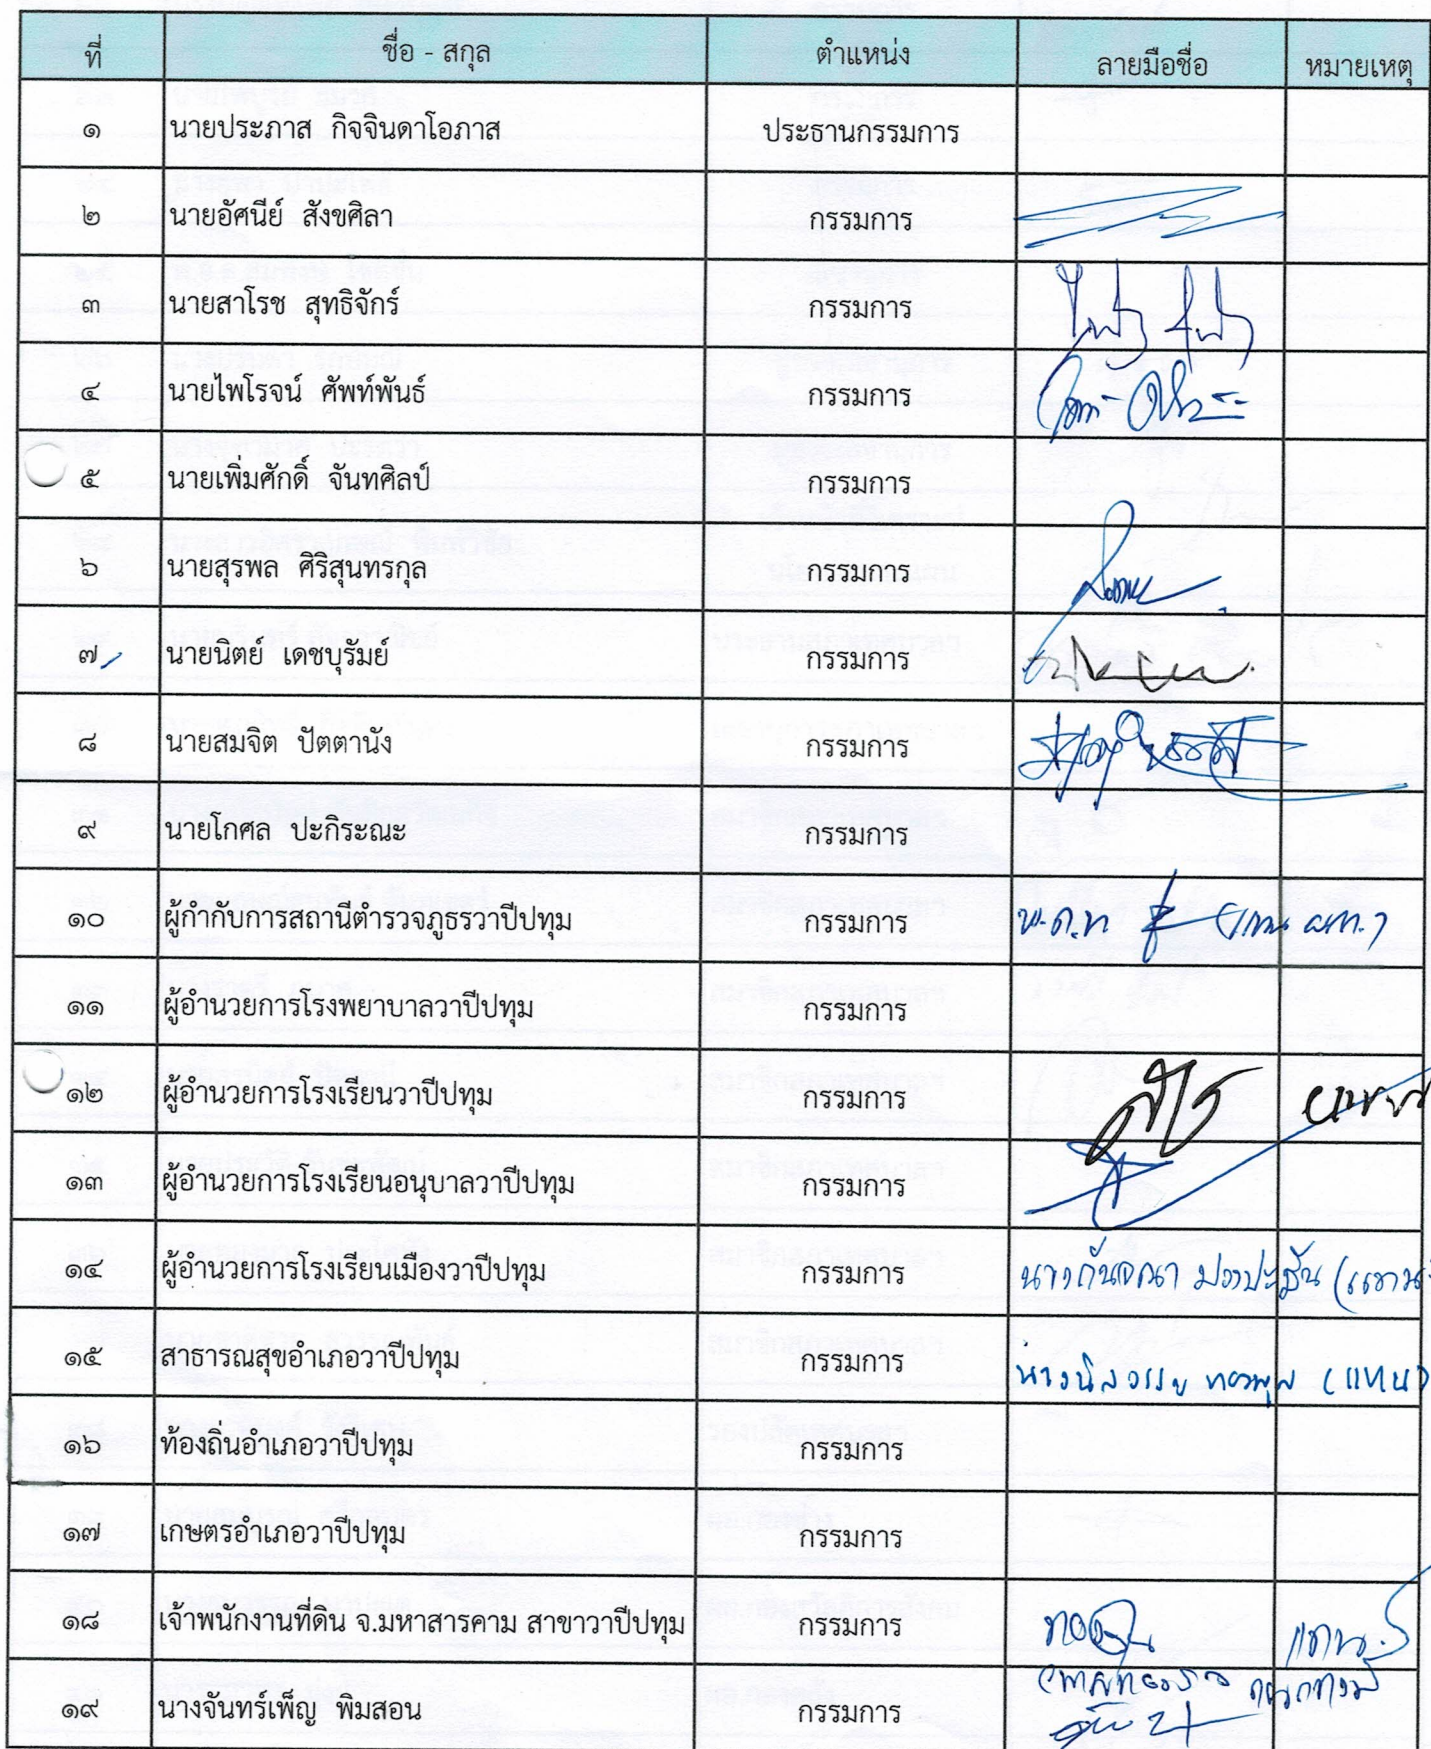 ที่ ชื่อ - สกุล ตำแหน่ง ลายมือชื่อ หมายเหตุ
๑ นายประภาส กิจจินดาโอภาส ประธานกรรมการ
๒ นายอัศนีย์ สังขศิลา กรรมการ
๓ นายสาโรช สุทธิจักร์ กรรมการ
๔ นายไพโรจน์ ศัพท์พันธ์ กรรมการ
๕ นายเพิ่มศักดิ์ จันทศิลป์ กรรมการ
๖ นายสุรพล ศิริสุนทรกุล กรรมการ
๗ นายนิตย์ เดชบุรัมย์ กรรมการ
๘ นายสมจิต ปัตตานัง กรรมการ
๙ นายโกศล ปะกิระณะ กรรมการ
๑๐ ผู้กำกับการสถานีตำรวจภูธรวาปีปทุม กรรมการ พ.ต.ท
๑๑ ผู้อำนวยการโรงพยาบาลวาปีปทุม กรรมการ
๑๒ ผู้อำนวยการโรงเรียนวาปีปทุม กรรมการ
๑๓ ผู้อำนวยการโรงเรียนอนุบาลวาปีปทุม กรรมการ
๑๔ ผู้อำนวยการโรงเรียนเมืองวาปีปทุม กรรมการ
๑๕ สาธารณสุขอำเภอวาปีปทุม กรรมการ (แทน)
๑๖ ท้องถิ่นอำเภอวาปีปทุม กรรมการ
๑๗ เกษตรอำเภอวาปีปทุม กรรมการ
๑๘ เจ้าพนักงานที่ดิน จ.มหาสารคาม สาขาวาปีปทุม กรรมการ
๑๙ นางจันทร์เพ็ญ พิมสอน กรรมการ